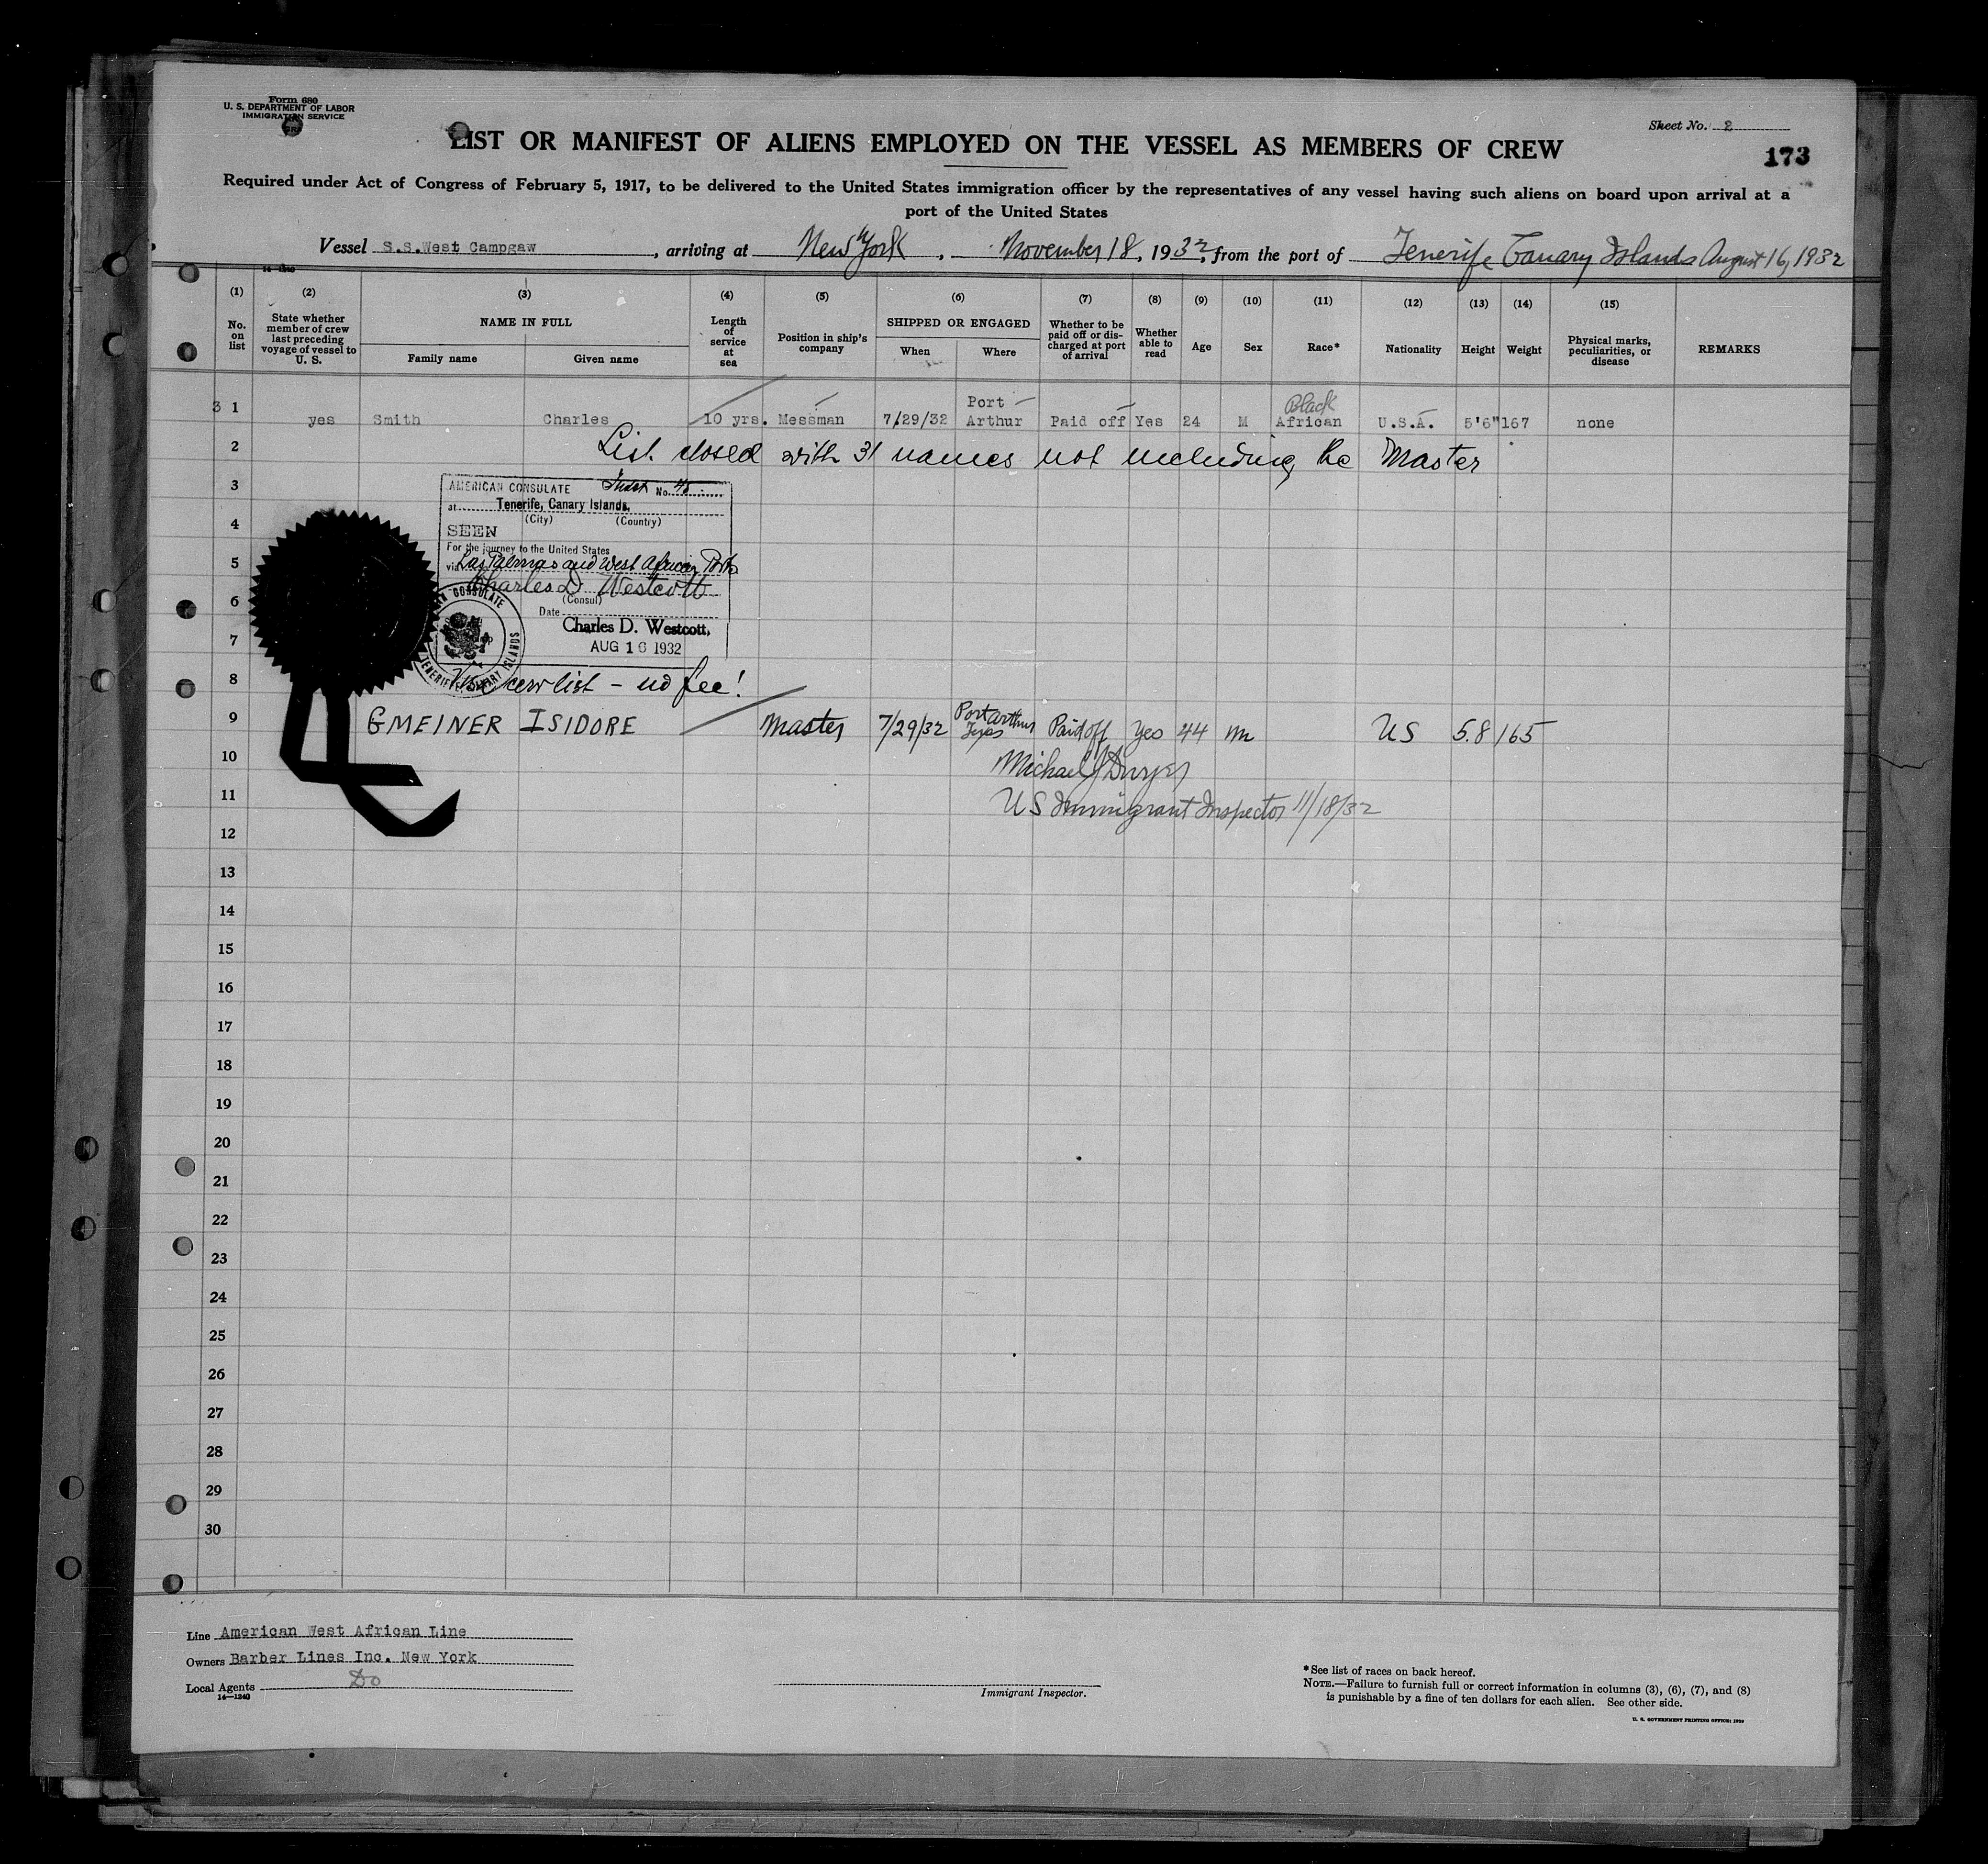 Form 680
U. S. DEPARTMENT OF LABOR
IMMIGRATION SERVICE
Sheet No. 2
LIST OR MANIFEST OF ALIENS EMPLOYED ON THE VESSEL AS MEMBERS OF CREW
173
Required under Act of Congress of February 5, 1917, to be delivered to the United States immigration officer by the representatives of any vessel having such aliens on board upon arrival at a
port of the United States
Vessel S.S.West Campgaw, arriving at New York, November 18, 1932, from the port of Tenerife Canary Islands August 16, 1932
14-1240
(1) (2) (3) (4) (5) (6) (7) (8) (9) (10) (11) (12) (13) (14) (15)
No. on list
State whether member of crew last preceding voyage of vessel to U. S.
NAME IN FULL
Family name
Given name
Length of service at sea
Position in ship's company
SHIPPED OR ENGAGED
When
Where
Whether to be paid off or discharged at port of arrival
Whether able to read
Age
Sex
Race*
Nationality
Height
Weight
Physical marks, peculiarities, or disease
REMARKS
31 yes Smith Charles 10 yrs. Messman 7/29/32 Port Arthur Paid off Yes 24 M Black African U.S.A. 5'6" 167 none
2 List closed with 31 names not including the Master
3
AMERICAN CONSULATE No. 45
at Tenerife, Canary Islands.
4
(City) (Country)
SEEN
For the journey to the United States
5
via Las Palmas and West African Ports
Charles D Westcott
6
(Consul)
Date
Charles D. Westcott,
7
AUG 16 1932
AMERICAN CONSULATE
TENERIFE, CANARY ISLANDS
8 Visa crew list - no fee!
9 GMEINER ISIDORE Master 7/29/32 Port Arthur Texas Paid off Yes 44 M US 5.8 165
10 Michael J Dwyer
11 US Immigrant Inspector 11/18/32
12
13
14
15
16
17
18
19
20
21
22
23
24
25
26
27
28
29
30
Line American West African Line
Owners Barber Lines Inc. New York
Local Agents Do
14-1240
Immigrant Inspector.
*See list of races on back hereof.
NOTE.—Failure to furnish full or correct information in columns (3), (6), (7), and (8)
is punishable by a fine of ten dollars for each alien. See other side.
U. S. GOVERNMENT PRINTING OFFICE: 1929